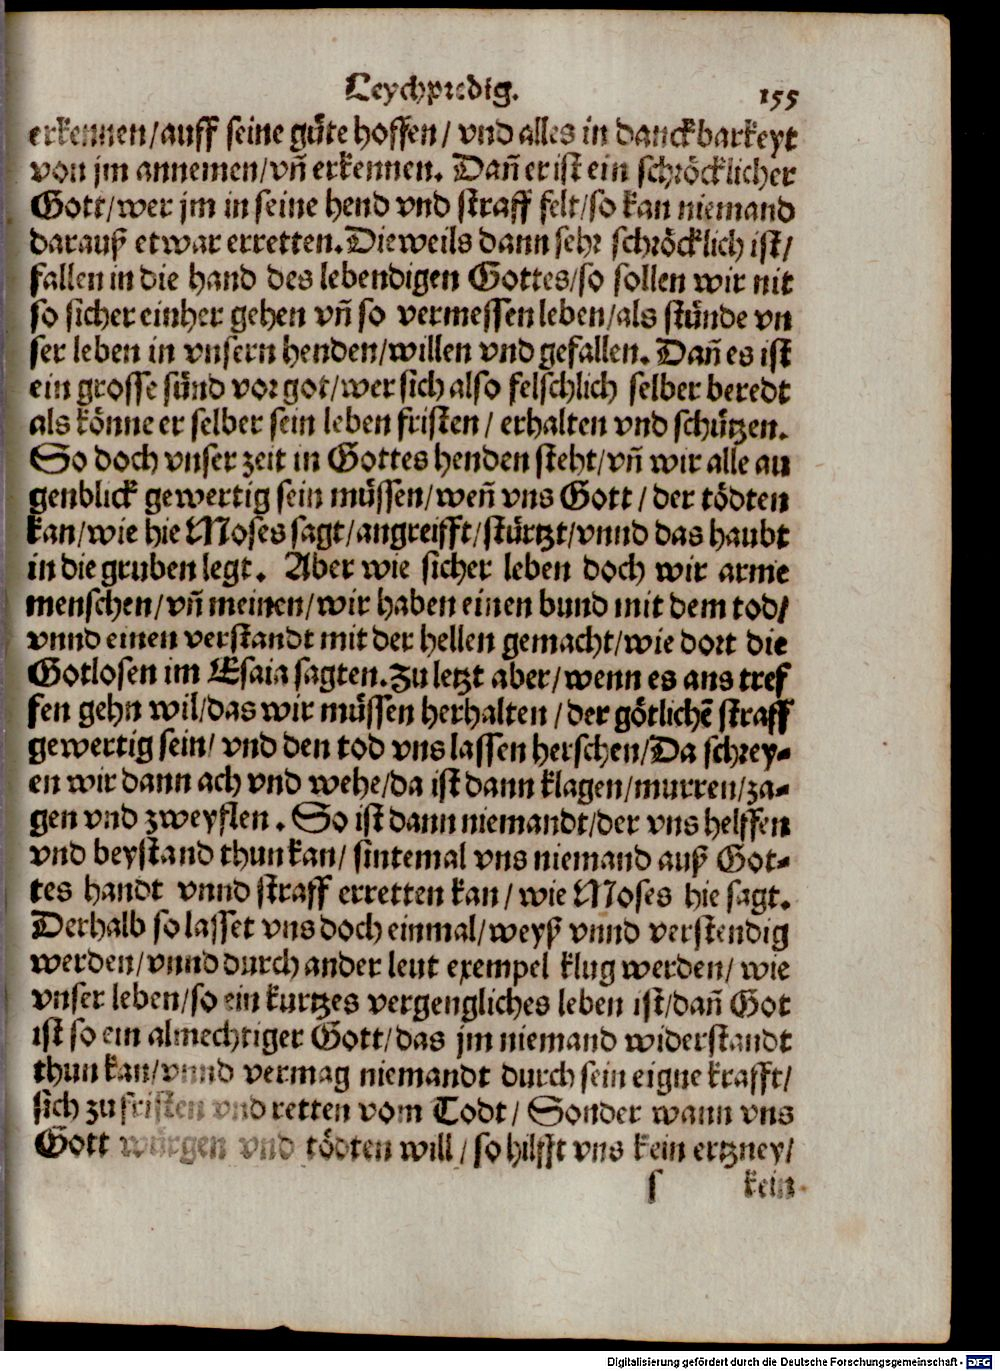 Leychpredig. 155
erkennen/auff seine güte hoffen/ vnd alles in danckbarkeyt
von jm annemen/vñ erkennen. Dañ er ist ein schröcklicher
Gott/wer jm in seine hend vnd straff felt/so kan niemand
darauß etwar erretten. Dieweils dann sehr schröcklich ist/
fallen in die hand des lebendigen Gottes/so sollen wir nit
so sicher einher gehen vñ so vermessen leben/als stünde vn
ser leben in vnsern henden/willen vnd gefallen. Dañ es ist
ein grosse sünd vor got/wer sich also felschlich selber beredt
als könne er selber sein leben fristen / erhalten vnd schützen.
So doch vnser zeit in Gottes henden steht/vñ wir alle au
genblick gewertig sein müssen/weñ vns Gott / der tödten
kan/wie hie Moses sagt/angreifft/stürtzt/vnnd das haubt
in die gruben legt. Aber wie sicher leben doch wir arme
menschen/vñ meinen/wir haben einen bund mit dem tod/
vnnd einen verstandt mit der hellen gemacht/wie dort die
Gotlosen im Esaia sagten. Zu letzt aber/wenn es ans tref
fen gehn wil/das wir müssen herhalten / der götlichē straff
gewertig sein/ vnd den tod vns lassen herschen/Da schrey-
en wir dann ach vnd wehe/da ist dann klagen/murren/za-
gen vnd zweyflen. So ist dann niemandt/der vns helffen
vnd beystand thun kan/ sintemal vns niemand auß Got-
tes handt vnnd straff erretten kan/ wie Moses hie sagt.
Derhalb so lasset vns doch einmal/weyß vnnd verstendig
werden/vnnd durch ander leut exempel klug werden/ wie
vnser leben/so ein kurtzes vergengliches leben ist/dañ Got
ist so ein almechtiger Gott/das jm niemand widerstandt
thun kan/vnnd vermag niemandt durch sein eigne krafft/
sich zu fristen vnd retten vom Todt/ Sonder wann vns
Gott würgen vnd tödten will/ so hilfft vns kein ertzney/
s kein
Digitalisierung gefördert durch die Deutsche Forschungsgemeinschaft - DFG